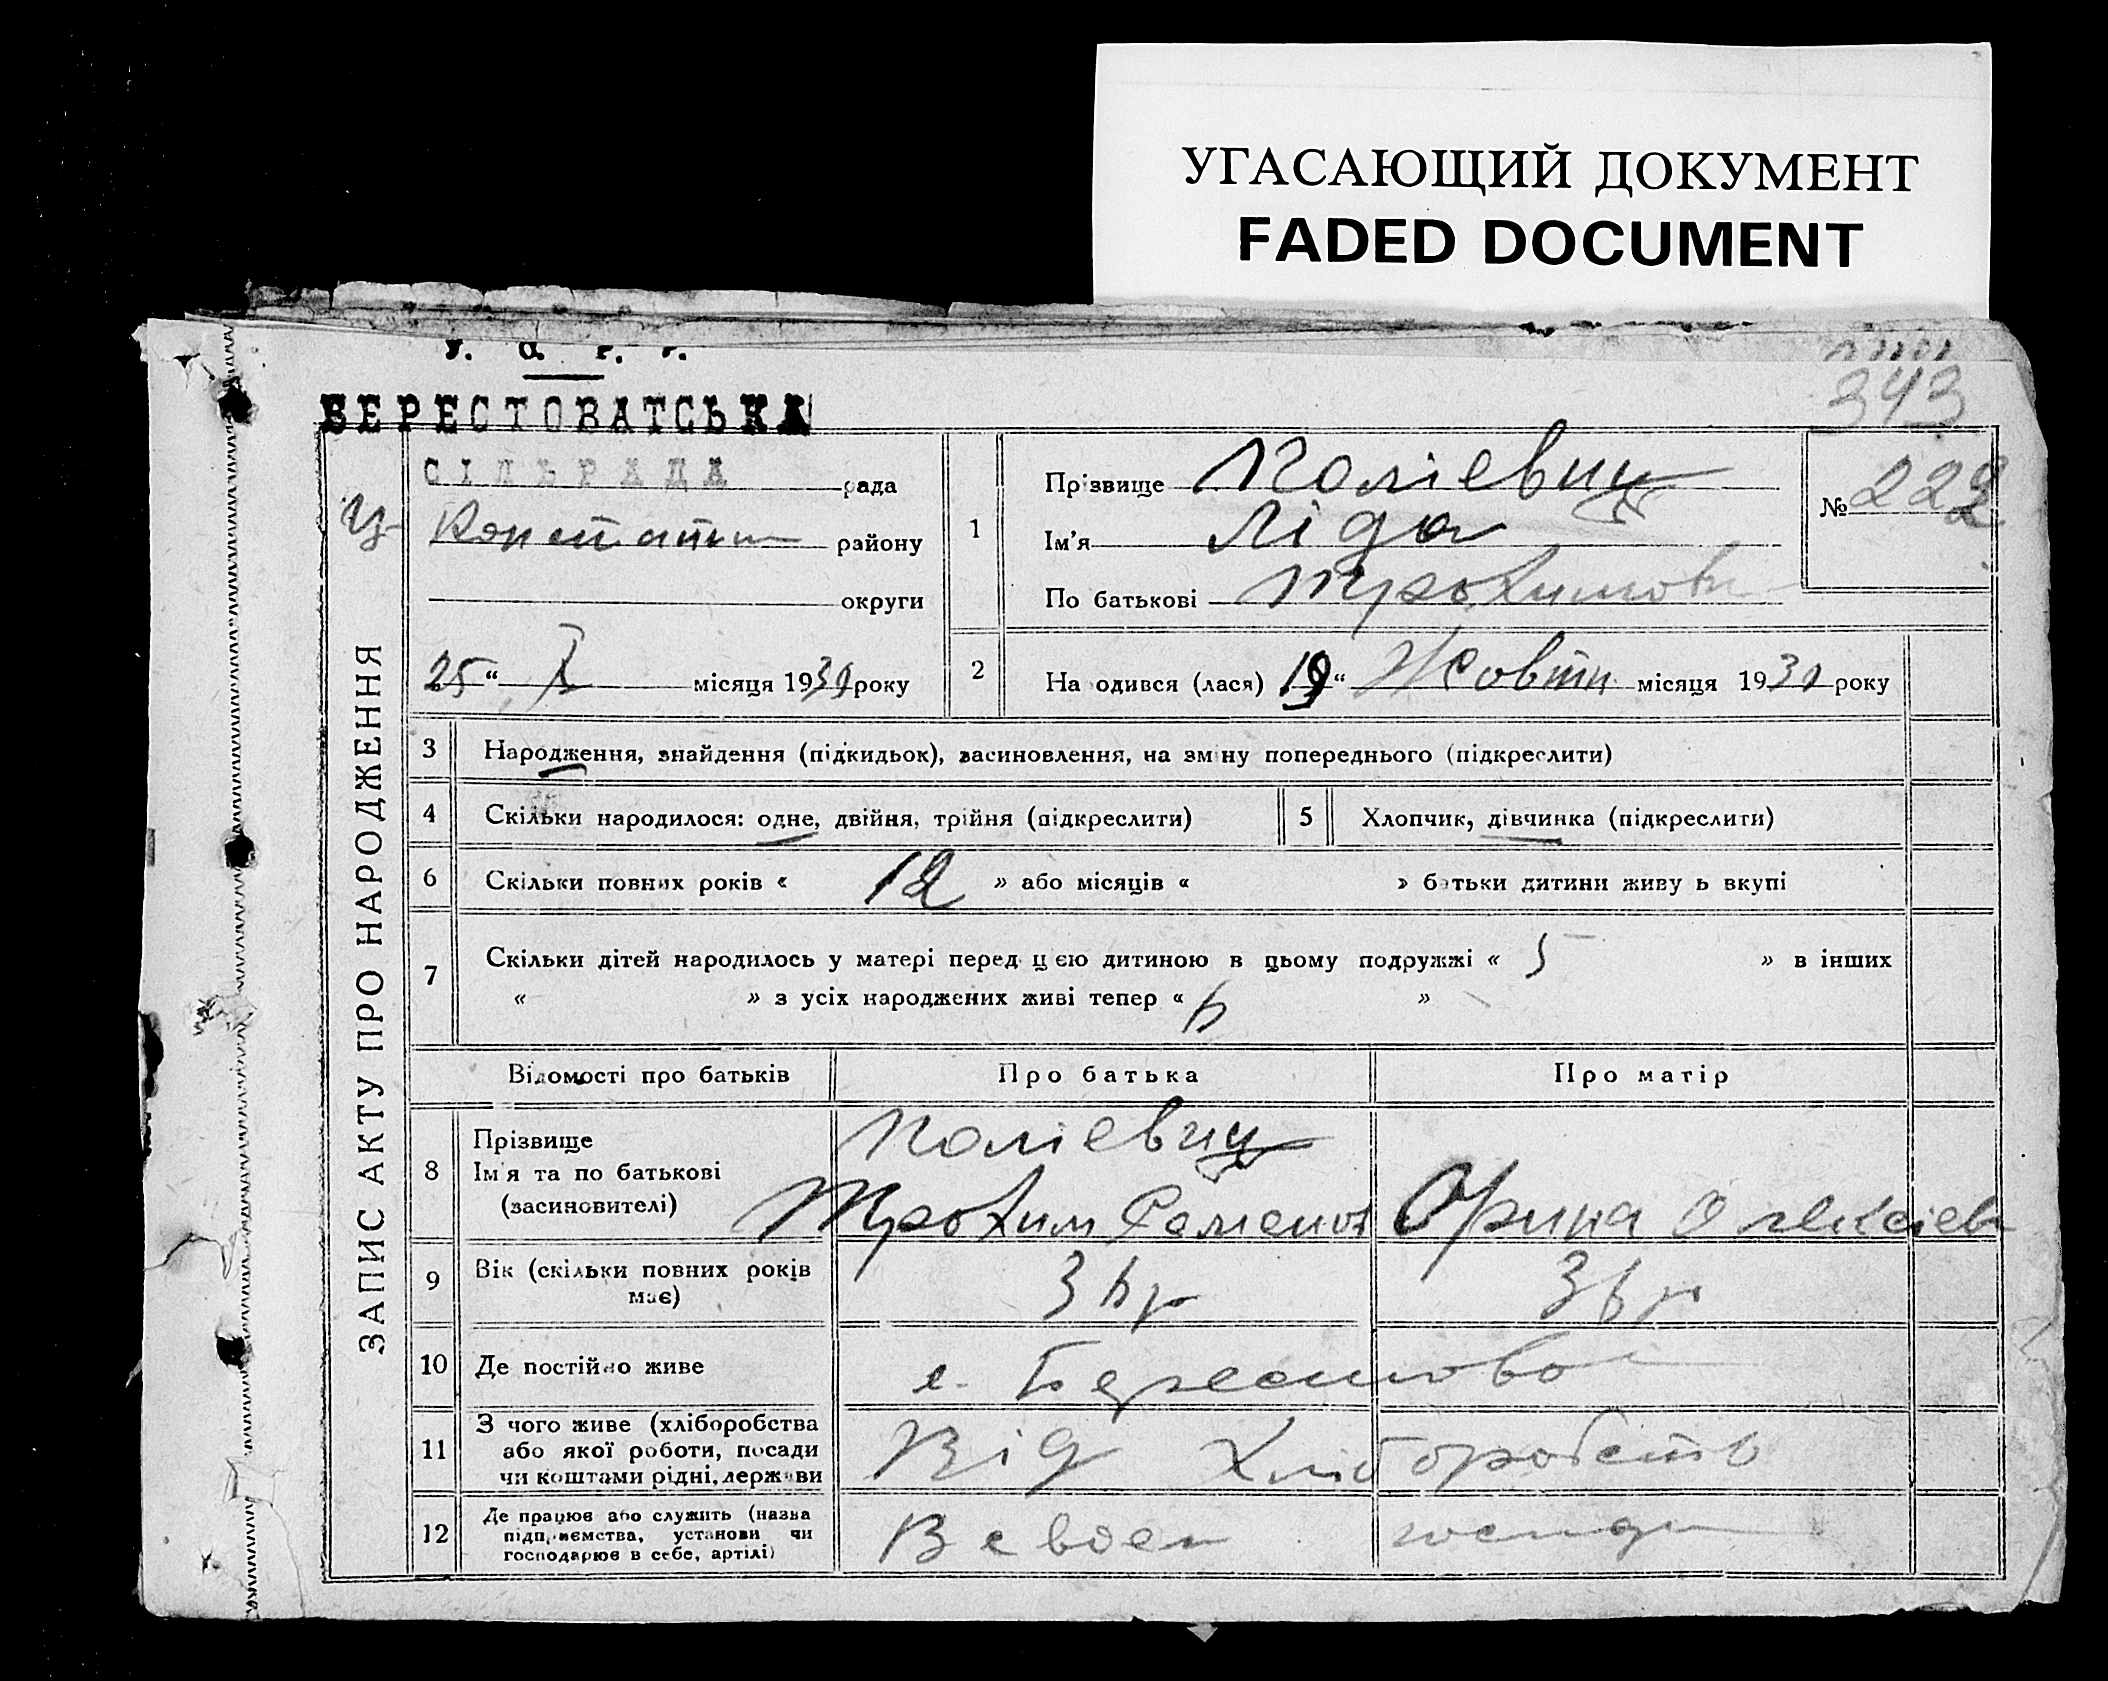 УГАСАЮЩИЙ ДОКУМЕНТ
FADED DOCUMENT
343
БЕРЕСТОВАТСЬКА
СІЛЬРАДА рада
району
округи
25 “ X місяця 1930 року
ЗАПИС АКТУ ПРО НАРОДЖЕННЯ
1
Прізвище
Ім'я Ліда
По батькові Трохимовн
№ 222
2 На одився (лася) 19 “ Жовтн місяця 193 року
3 Народження, знайдення (підкидьок), засиновлення, на зміну попереднього (підкреслити)
4 Скільки народилося: одне, двійня, трійня (підкреслити) 5 Хлопчик, дівчинка (підкреслити)
6 Скільки повних років « 12 » або місяців « » батьки дитини живу ь вкупі
7 Скільки дітей народилось у матері перед цією дитиною в цьому подружжі « 5 » в інших
« » з усіх народжених живі тепер « »
Відомості про батьків Про батька Про матір
8 Прізвище
Ім'я та по батькові Трохим Семенов Орина Олексіев
(засиновителі)
9 Вік (скільки повних років має)
10 Де постійно живе с. Берестово
11 З чого живе (хліборобства або якої роботи, посади чи коштами рідні, держави Від хліборобств
12 Де працює або служить (назва підприємства, установи чи господарює в себе, артілі)